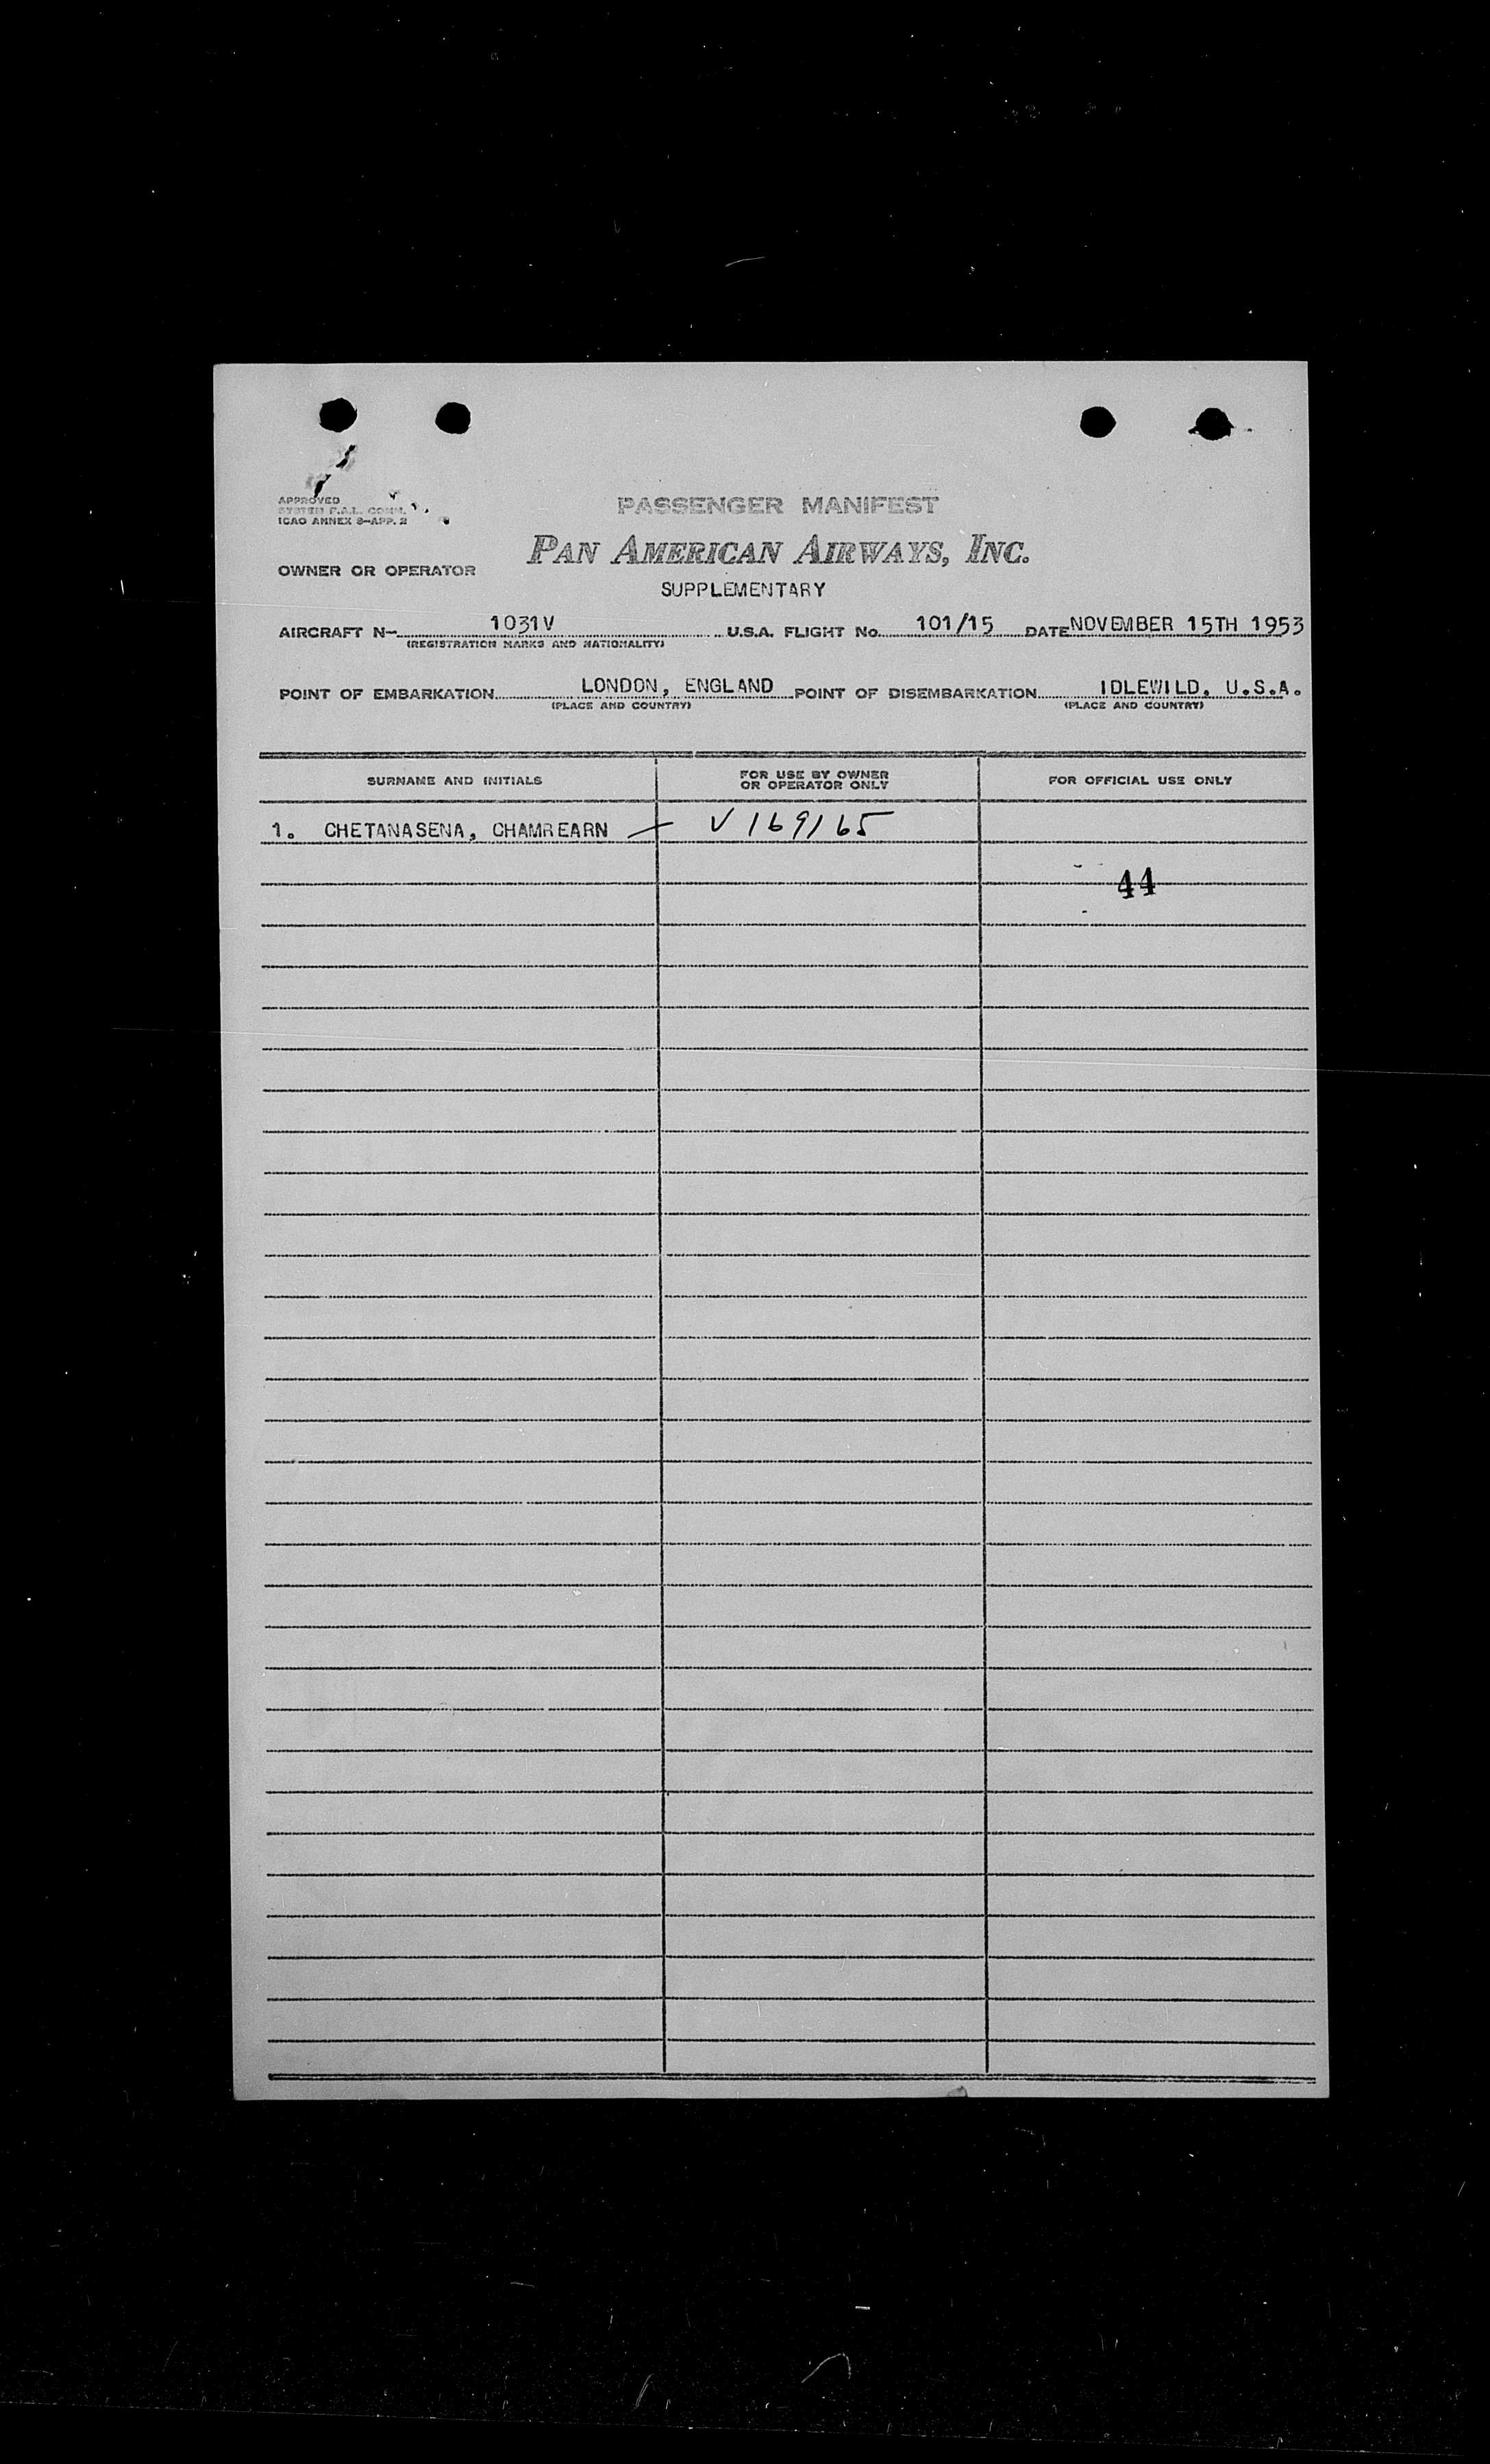 APPROVED
SYSTEM P.A.L. COMM.
ICAO ANNEX 9-APP. 2
PASSENGER MANIFEST
PAN AMERICAN AIRWAYS, INC.
OWNER OR OPERATOR
SUPPLEMENTARY
AIRCRAFT N- 1031V U.S.A. FLIGHT No. 101/15 DATE NOVEMBER 15TH 1953
(REGISTRATION MARKS AND NATIONALITY)
POINT OF EMBARKATION LONDON, ENGLAND POINT OF DISEMBARKATION IDLEWILD, U.S.A.
(PLACE AND COUNTRY) (PLACE AND COUNTRY)
SURNAME AND INITIALS FOR USE BY OWNER OR OPERATOR ONLY FOR OFFICIAL USE ONLY
1. CHETANASENA, CHAMREARN V169165
44